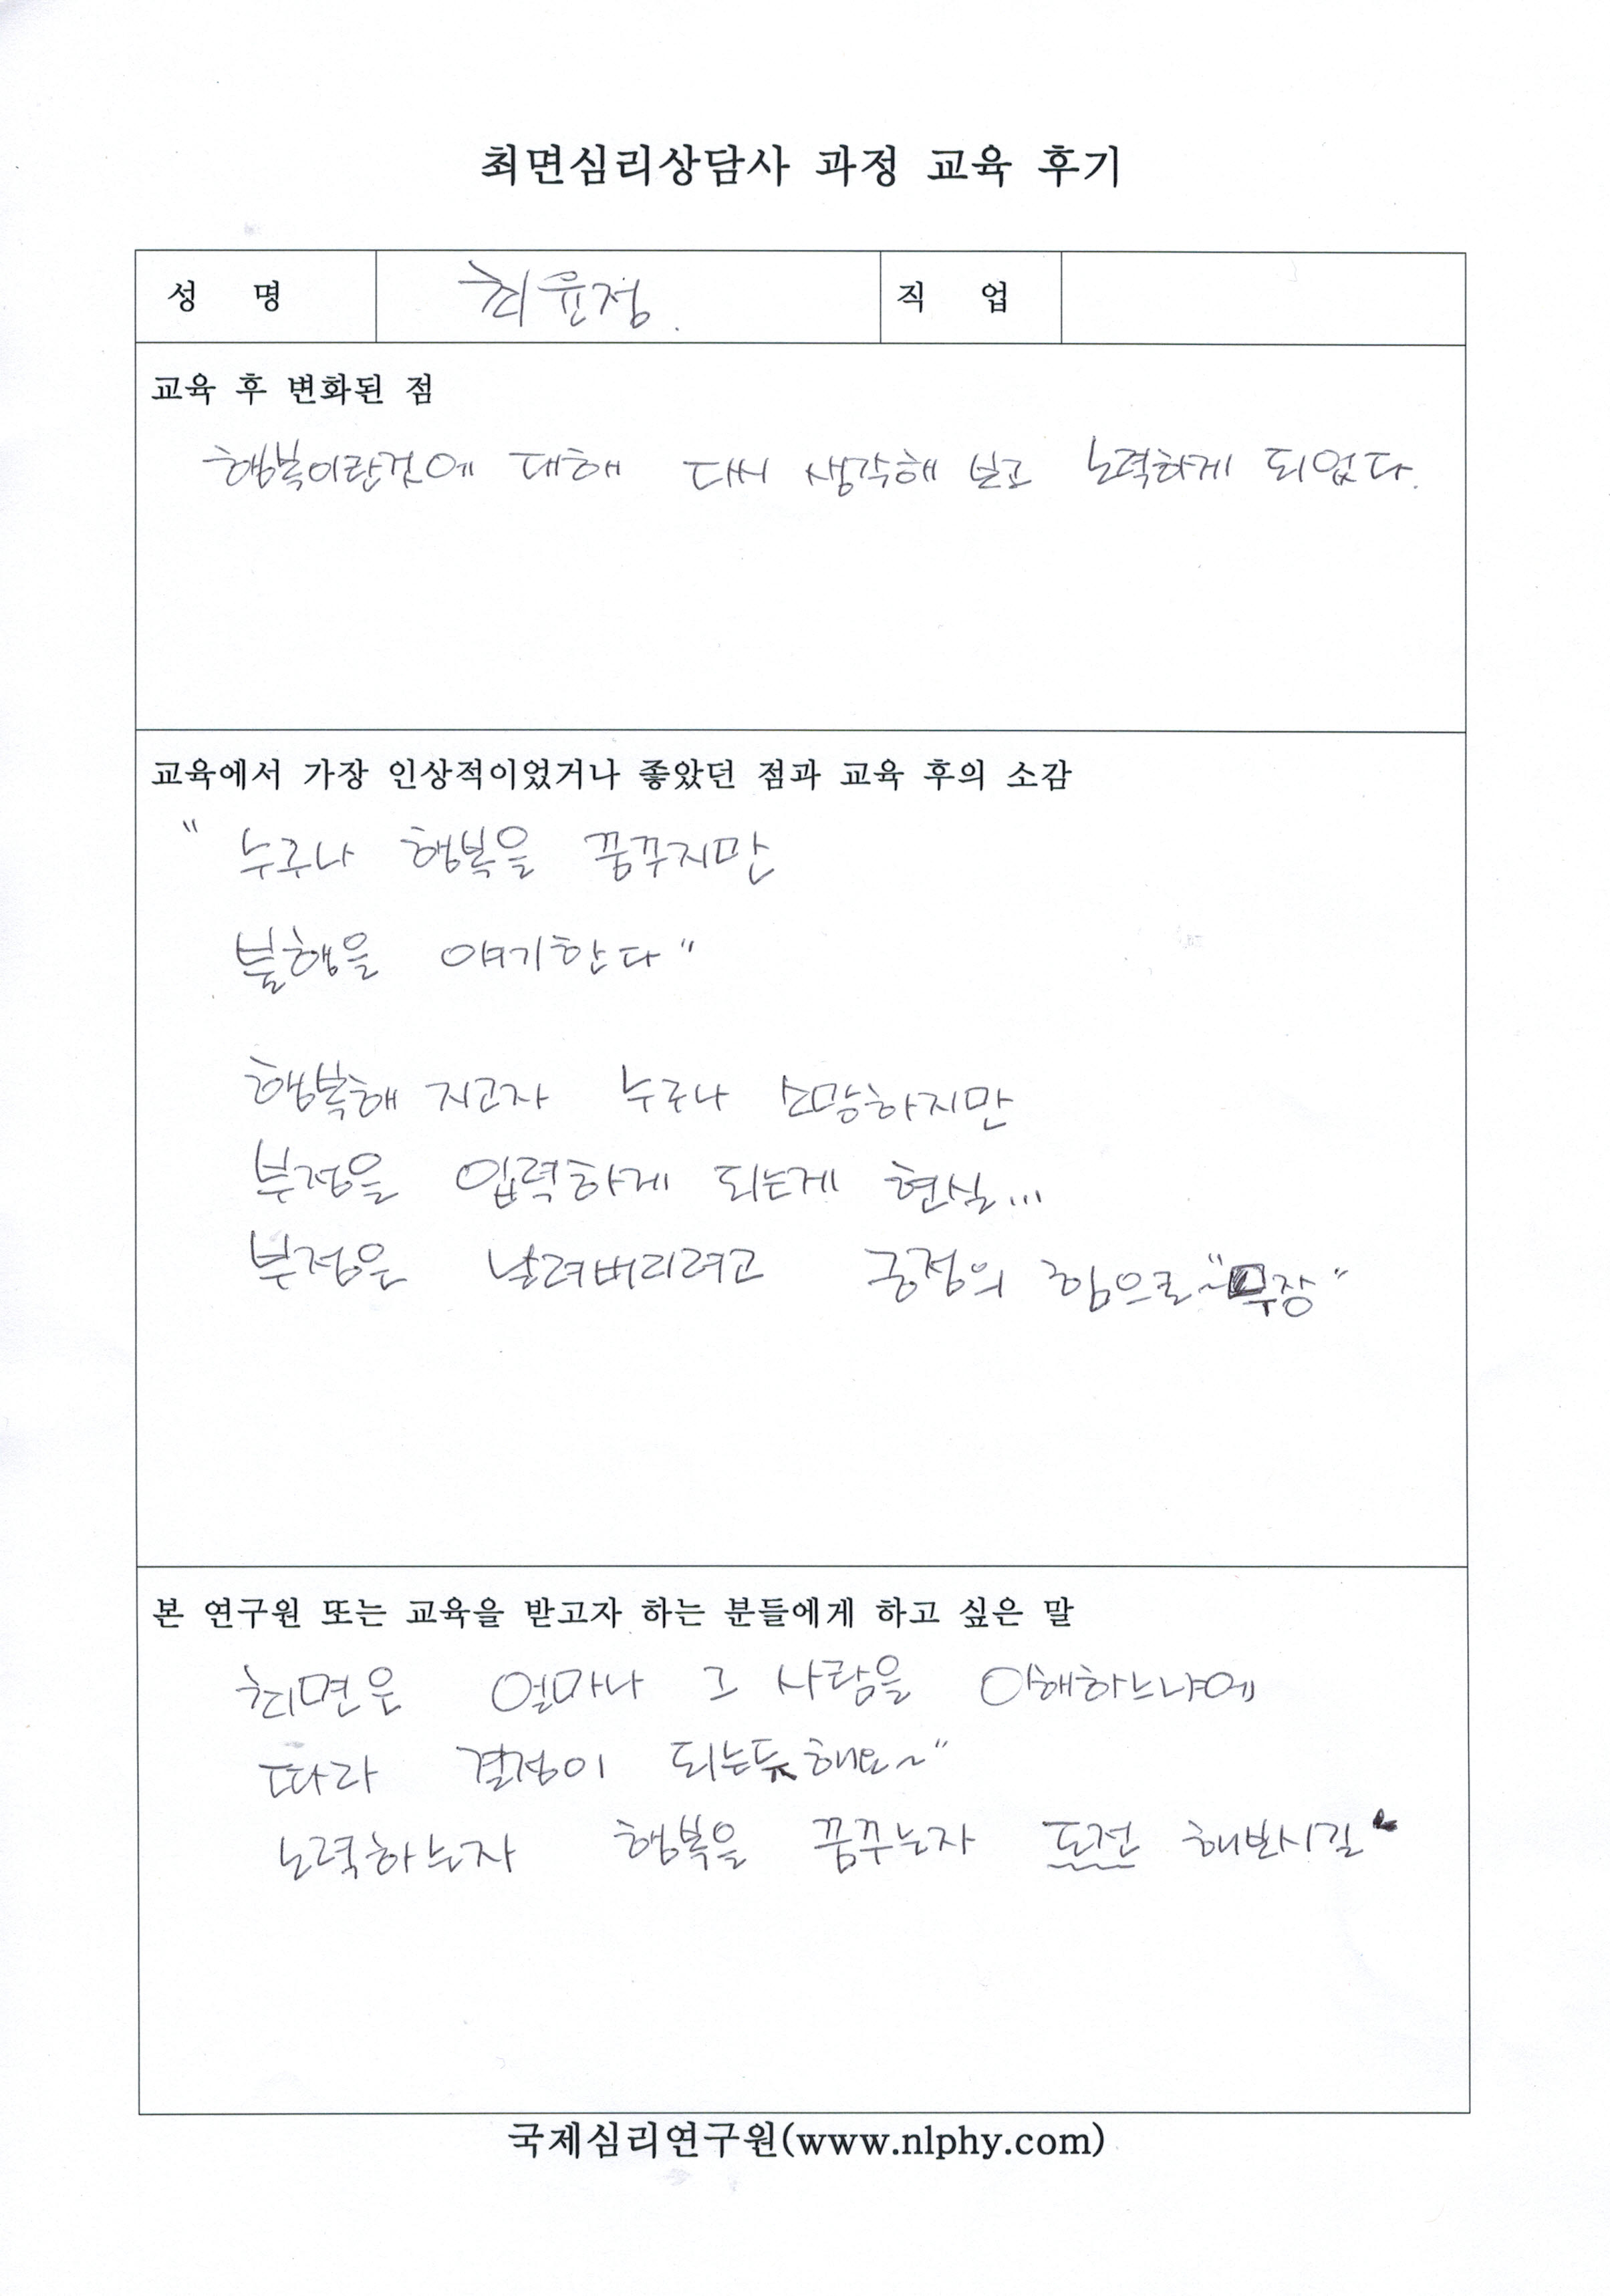 최면심리상담사 과정 교육 후기
성 명 최윤정. 직 업
교육 후 변화된 점
행복이란것에 대해 다시 생각해 보고 노력하게 되었다.
교육에서 가장 인상적이었거나 좋았던 점과 교육 후의 소감
" 누구나 행복을 꿈꾸지만
불행을 얘기한다"
행복해 지고자 누구나 소망하지만
부정을 입력하게 되는게 현실...
부정은 날려버리려고 긍정의 힘으로~"무장"
본 연구원 또는 교육을 받고자 하는 분들에게 하고 싶은 말
최면은 얼마나 그 사람을 이해하느냐에
따라 결정이 되는듯해요~"
노력하는자 행복을 꿈꾸는자 도전 해보시길
국제심리연구원(www.nlphy.com)